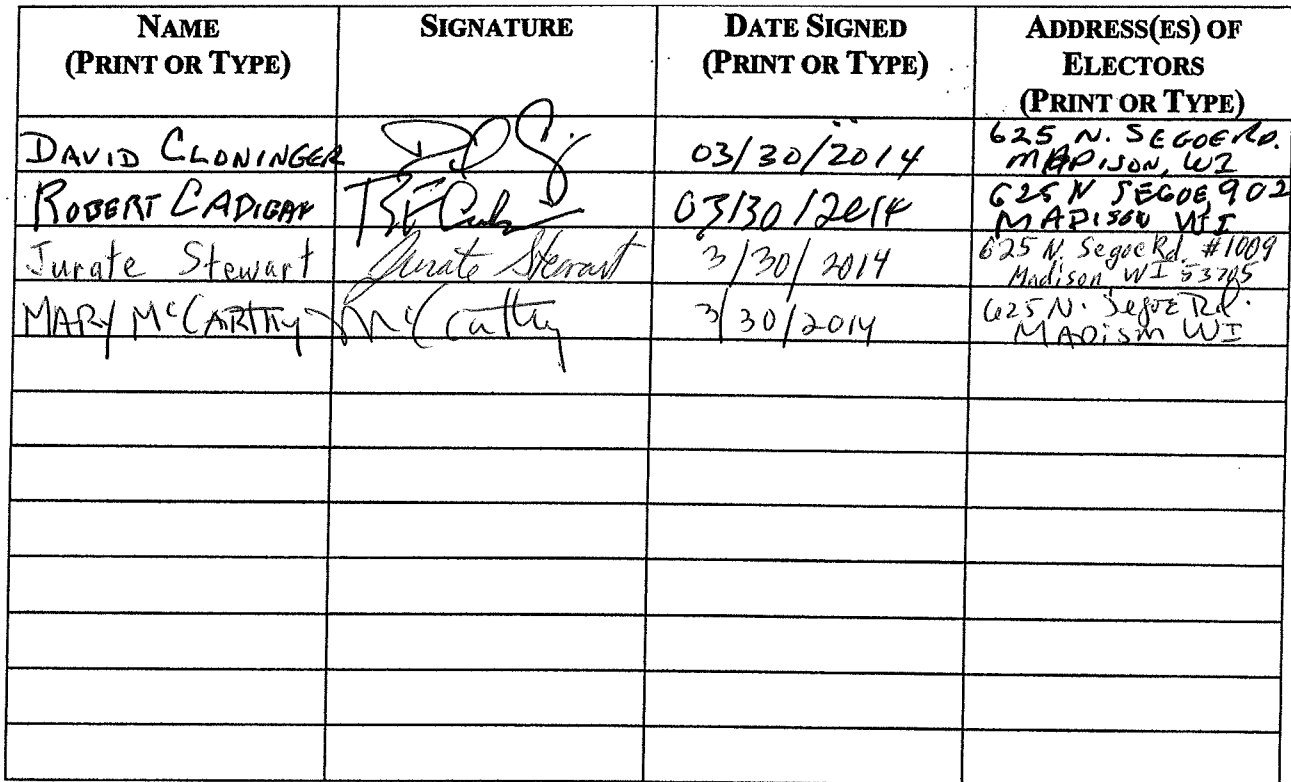 NAME
(PRINT OR TYPE)
SIGNATURE
DATE SIGNED
(PRINT OR TYPE)
ADDRESS(ES) OF
ELECTORS
(PRINT OR TYPE)
DAVID CLONINGER
03/30/2014
625 N. SEGOE RD.
MADISON, WI
ROBERT CADIGAN
03/30/2014
625 N SEGOE, 902
MADISON WI
Jurate Stewart Jurate Stewart 3/30/2014
625 N. Segoe Rd. #1009
Madison, WI 53705
MARY McCARTHY McCarthy 3/30/2014
625 N. Segoe Rd.
MADISON WI